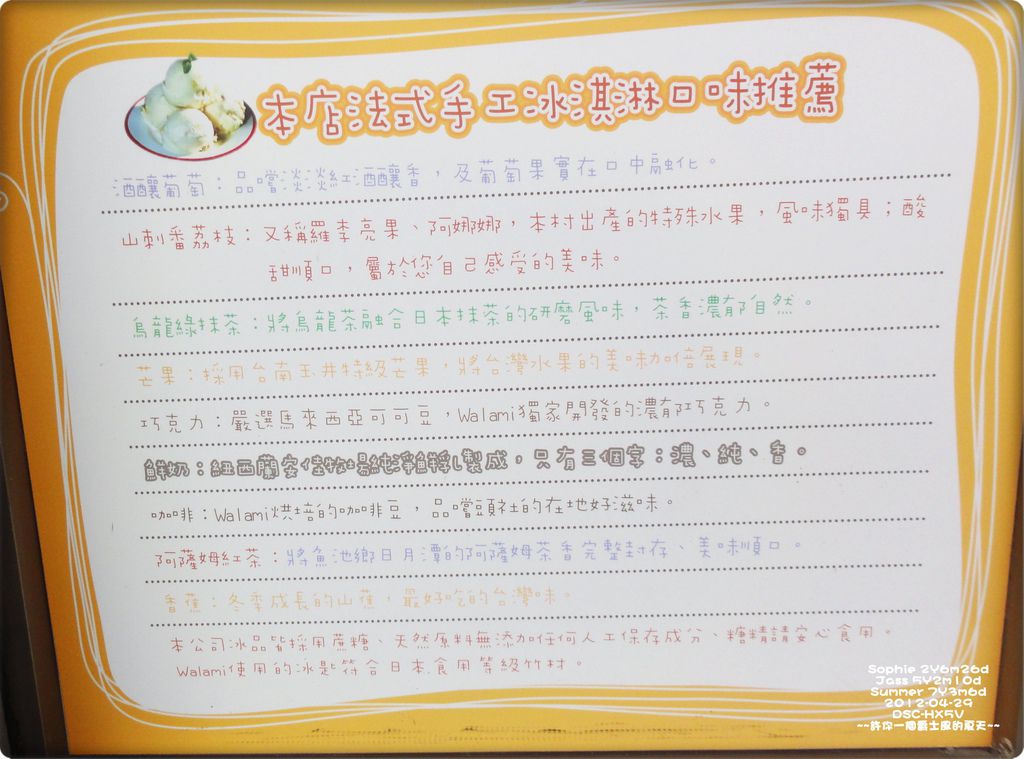 本店法式手工冰淇淋口味推薦
酒釀葡萄：品嚐淡淡紅酒釀香，及葡萄果實在口中融化。
山刺番荔枝：又稱羅李亮果、阿娜娜，本村出產的特殊水果，風味獨具；酸
甜順口，屬於您自己感受的美味。
烏龍綠抹茶：將烏龍茶融合日本抹茶的研磨風味，茶香濃郁自然。
芒果：採用台南玉井特級芒果，將台灣水果的美味加倍展現。
巧克力：嚴選馬來西亞可可豆，Walami獨家開發的濃郁巧克力。
鮮奶：紐西蘭安佳牧場純淨鮮乳製成，只有三個字：濃、純、香。
咖啡：Walami烘培的咖啡豆，品嚐頭社的在地好滋味。
阿薩姆紅茶：將魚池鄉日月潭的阿薩姆茶香完整封存、美味順口。
香蕉：冬季成長的山蕉，最好吃的台灣味。
本公司冰品皆採用蔗糖、天然原料無添加任何人工保存成分、糖精請安心食用。
Walami使用的冰匙符合日本食用等級竹材。
Sophie 2Y6m26d
Jass 5Y2m10d
Summer 7Y3m6d
2012-04-29
DSC-HX5V
~~許你一個爵士風的夏天~~